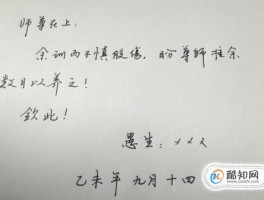 师尊在上：
余训而不慎股伤，盼尊师准余
数日以养之！
钦此！
愚生：xxx
乙未年 九月十四
酷知网